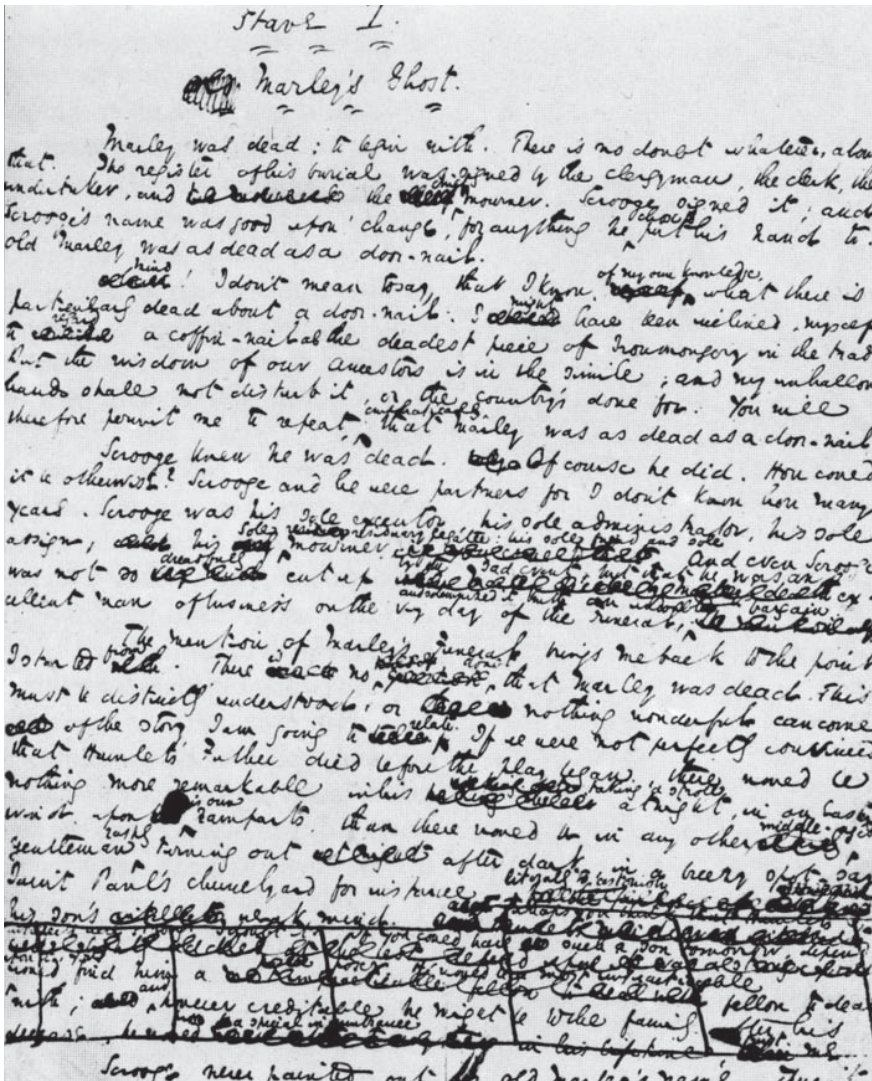 Stave I.
Marley's Ghost.
Marley was dead: to begin with. There is no doubt whatever, abou
that. The register of his burial was signed by the clergyman, the clerk, the
undertaker, and the chief mourner. Scrooge signed it; and
Scrooge's name was good upon 'change, for anything he chose to put his hand to.
old Marley was as dead as a door-nail.
mind! I don't mean to say, that I know, of my own knowledge, what there is
particularly dead about a door-nail. I might have been inclined, myself
to regard a coffin-nail as the deadest piece of Ironmongery in the trad
But the wisdom of our ancestors is in the simile; and my unhallow
hands shall not disturb it, or the country's done for. You will
therefore permit me to repeat, emphatically, that Marley was as dead as a door-nail
Scrooge knew he was dead. Of course he did. How could
it be otherwise? Scrooge and he were partners for I don't know how many
years. Scrooge was his sole executor, his sole administrator, his sole
assign, his sole residuary legatee: his sole friend and sole mourner. And even Scrooge
was not so dreadfully cut up by the sad event, but that he was an ex
cellent man of business on the very day of the funeral, and solemnized it with an undoubted bargain
The mention of Marley's funeral brings me back to the point
I started from. There is no doubt, that Marley was dead. This
must be distinctly understood, or nothing wonderful can come
of the story I am going to relate. If we were not perfectly convinced
that Hamlet's Father died before the play began, there would be
nothing more remarkable in his taking a stroll at night, in an easter
wind, upon his own ramparts, than there would be in any other middle-aged
gentleman rashly turning out after dark in a breezy spot say
Saint Paul's churchyard for instance literally to astonish
his son's weak mind.
such a son tomorrow
would find him a fellow to deal
with; and however creditable he might be to the family
in his lifetime
Scrooge never painted out old Marley's name.